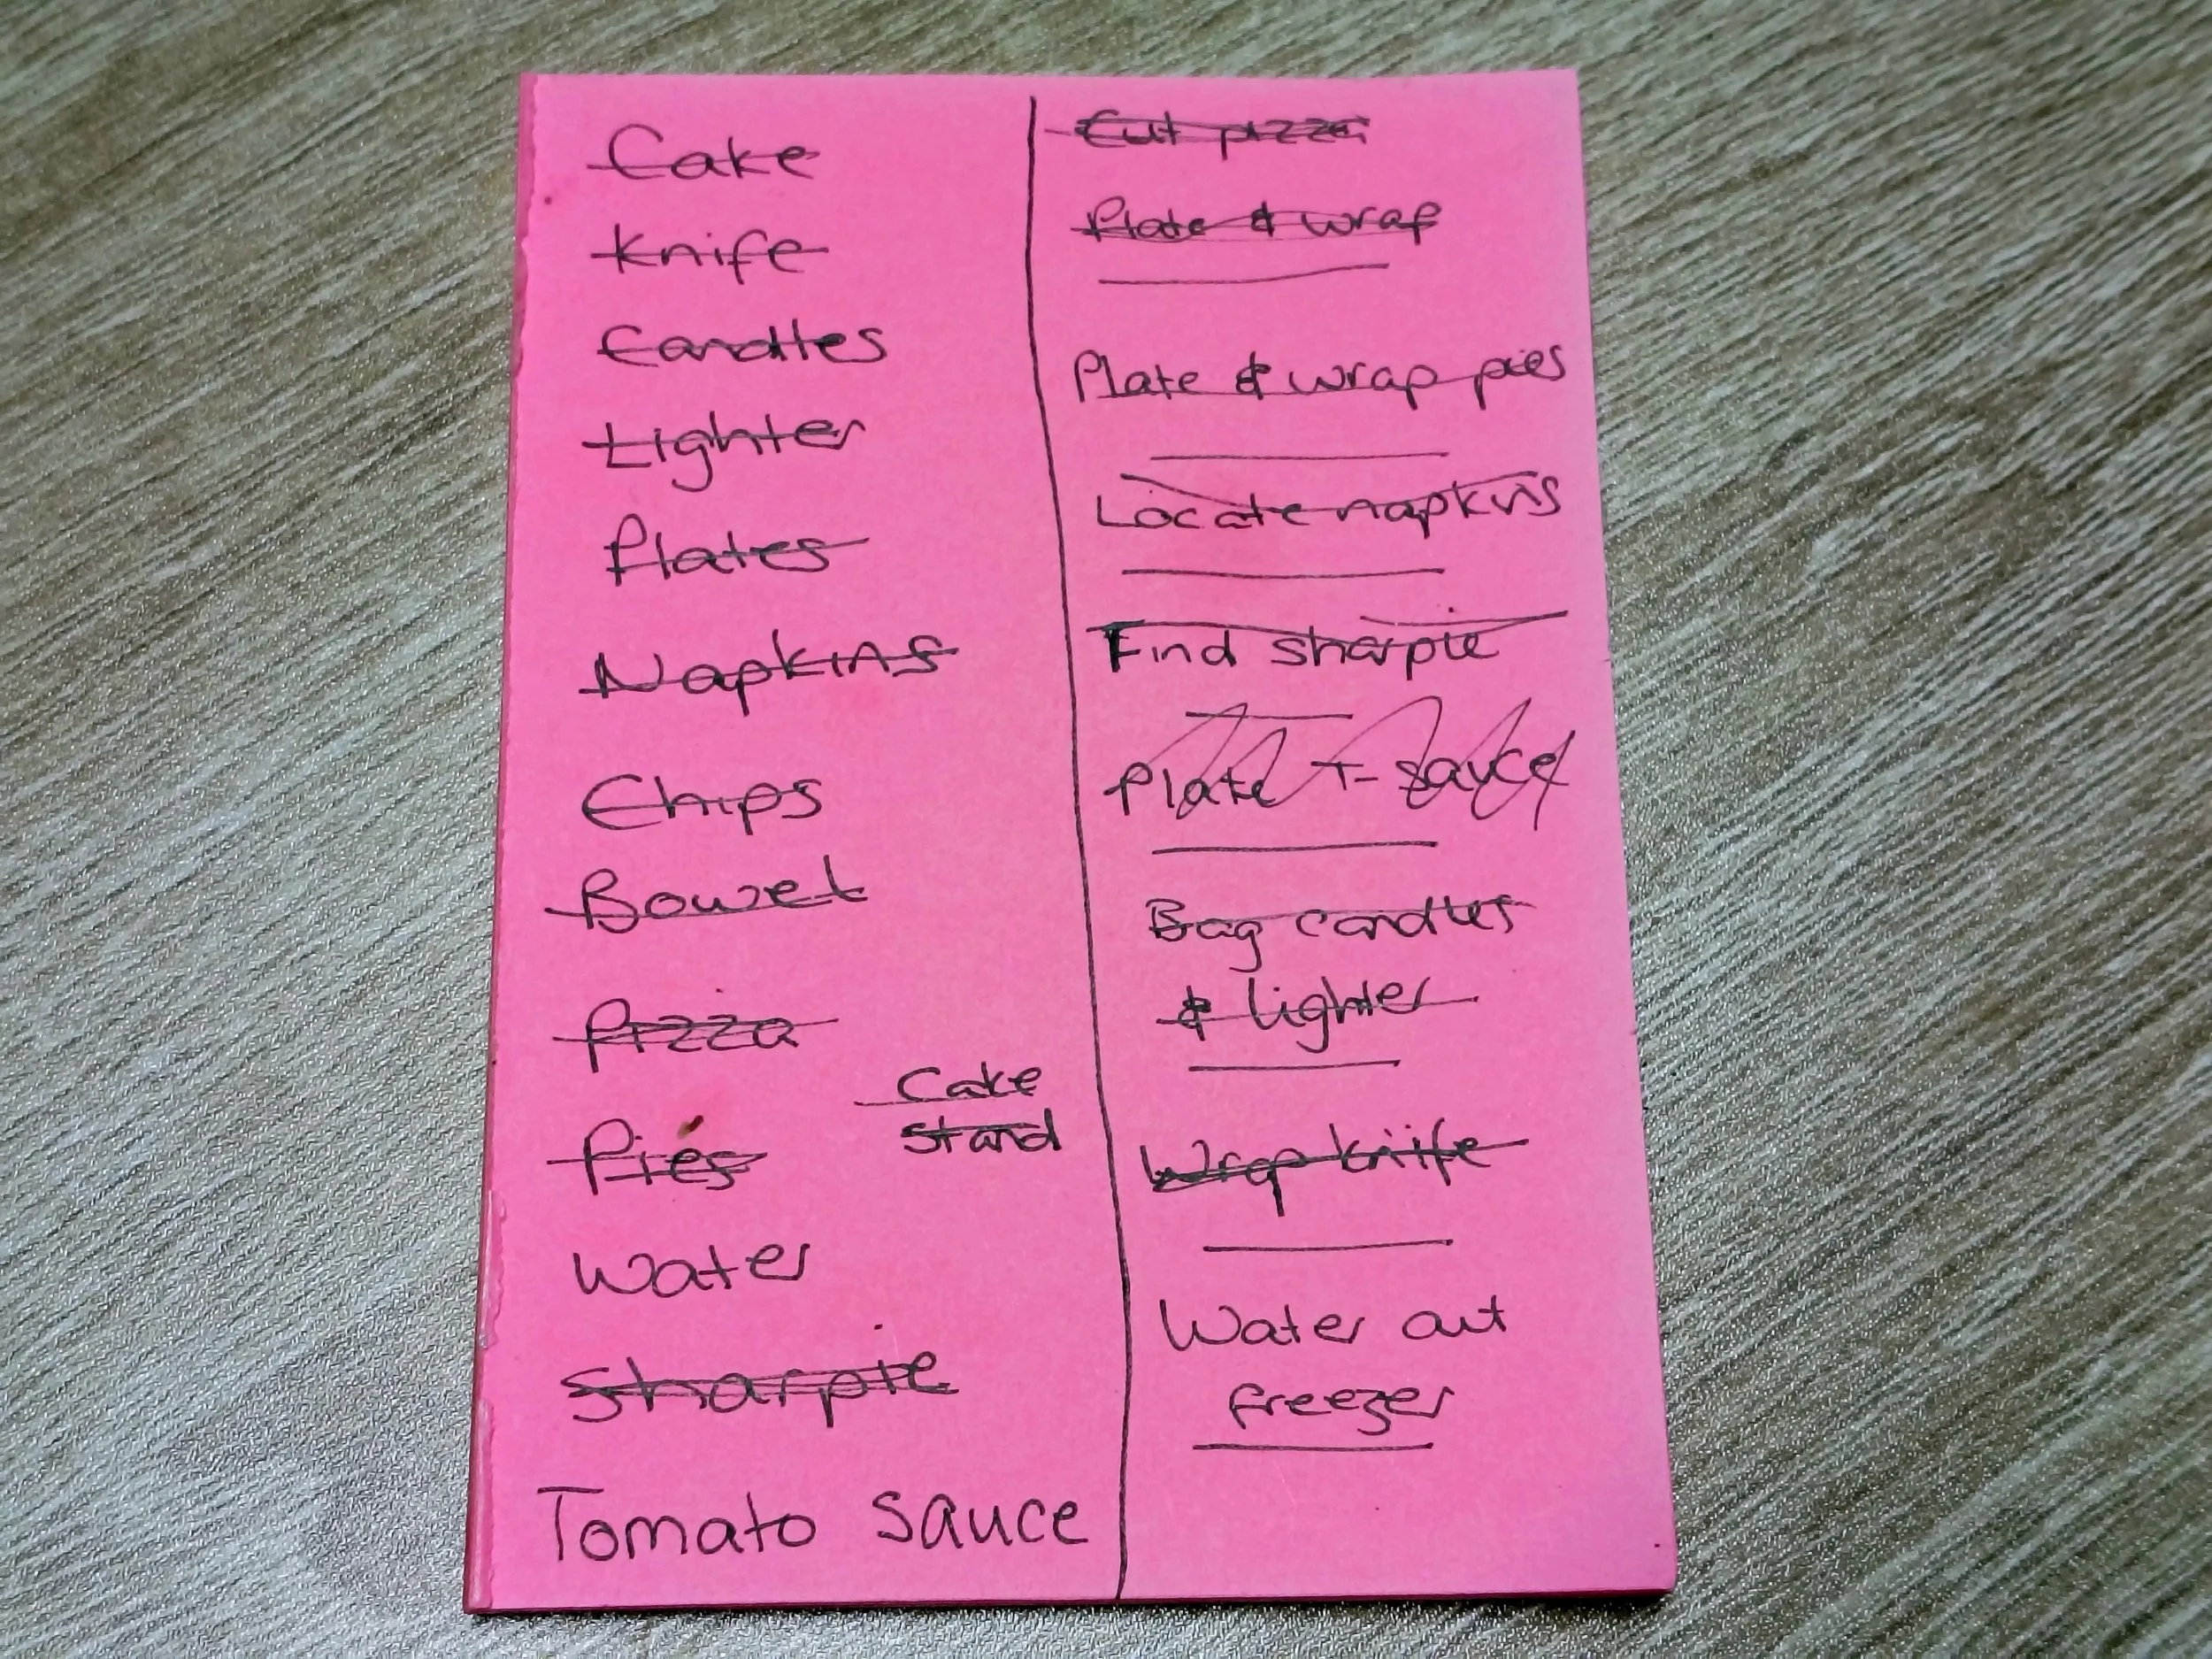 Cake
Knife
Candles
Lighter
Plates
Napkins
Chips
Bowel
Pizza
Cake
stand
Pies
Water
Sharpie
Tomato sauce
Cut pizza
Plate & wrap
Plate & wrap pies
Locate napkins
Find sharpie
Plate T-sauce
Bag candles
& lighter
Wrap knife
Water out
freezer